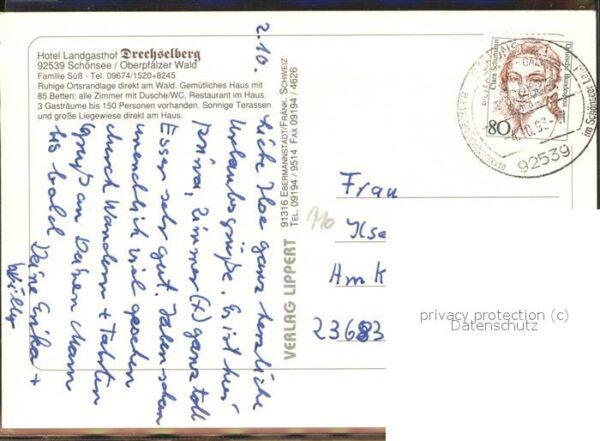 Hotel Landgasthof Drechselberg
92539 Schönsee / Oberpfälzer Wald
Familie Süß - Tel. 09674/1520+8245
Ruhige Ortsrandlage direkt am Wald. Gemütliches Haus mit
85 Betten; alle Zimmer mit Dusche/WC, Restaurant im Haus.
3 Gasträume bis 150 Personen vorhanden. Sonnige Terassen
und große Liegewiese direkt am Haus.
2.10.
Liebe Ilse ganz herzliche
Urlaubsgrüße. Es ist hier
prima, Zimmer (+) ganz toll
Essen sehr gut. Haben schon
unendlich viel gesehen
durch Wandern + Fahrten
Gruß an Deinen Mann
bis bald Deine Erika +
Willy
VERLAG LIPPERT
91316 EBERMANNSTADT/FRÄNK. SCHWEIZ
TEL. 09194 / 9514 FAX 09194 / 4626
Clara Schumann
Deutsche Bundespost
80
.10.93
92539
im Schönseer
Frau
Ilse
Am K
23683
privacy protection (c)
Datenschutz